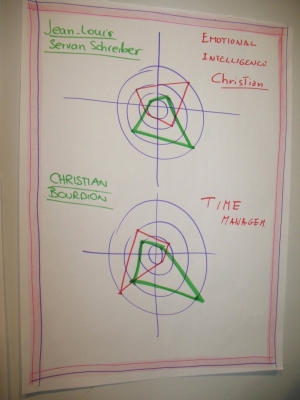 Jean-Louis
Servan Schreiber
EMOTIONAL
INTELLIGENCE
Christian
CHRISTIAN
BOURDION
TIME
MANAGEM